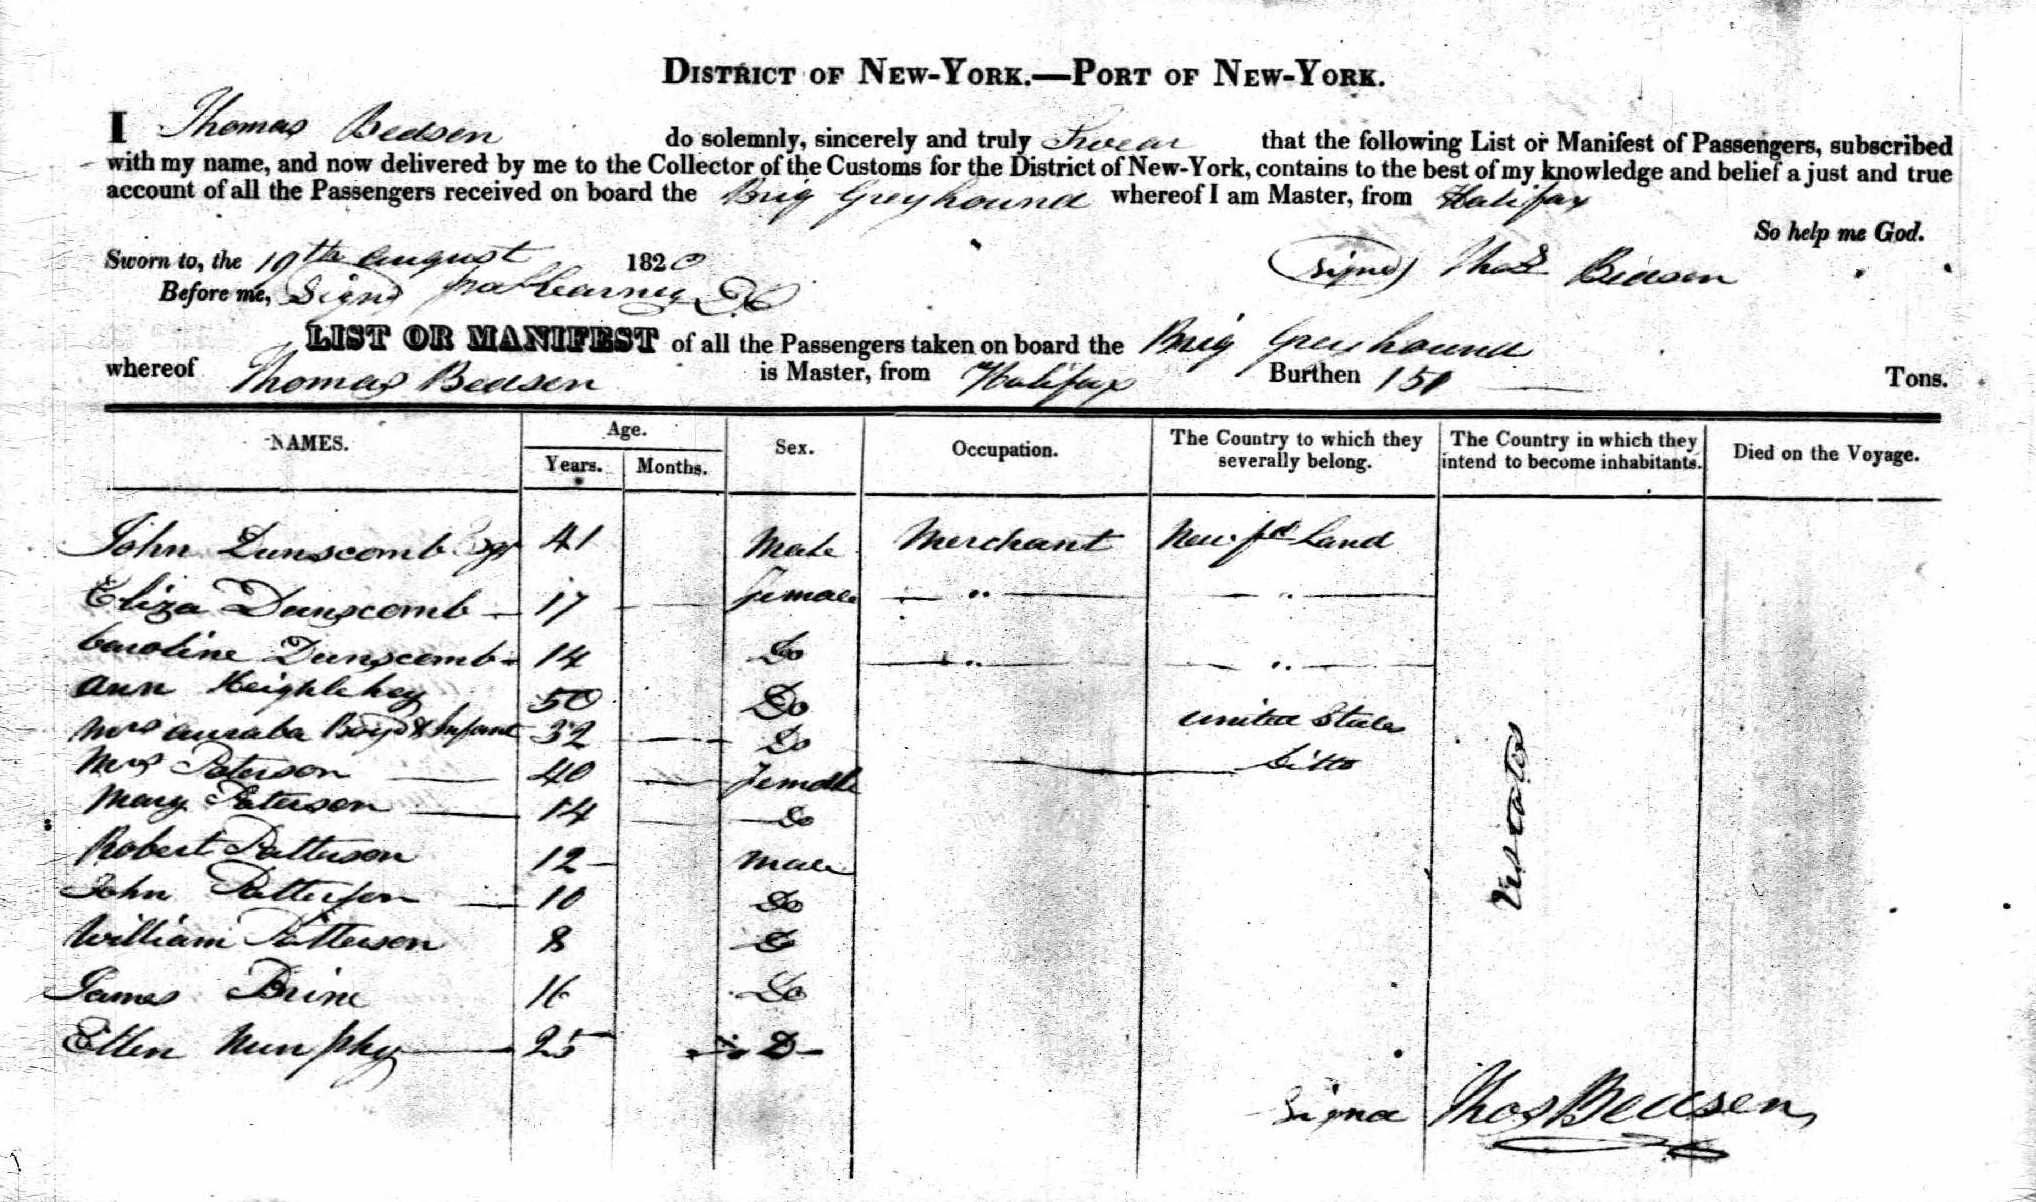 DISTRICT OF NEW-YORK.—PORT OF NEW-YORK.
I Thomas Bedsen do solemnly, sincerely and truly Swear that the following List or Manifest of Passengers, subscribed
with my name, and now delivered by me to the Collector of the Customs for the District of New-York, contains to the best of my knowledge and belief a just and true
account of all the Passengers received on board the Brig Greyhound whereof I am Master, from Halifax
So help me God.
Sworn to, the 10th august 1820 (signed) Thos Bedsen
Before me, Signd
LIST OR MANIFEST of all the Passengers taken on board the Brig Greyhound
whereof Thomas Bedsen is Master, from Halifax Burthen 151 Tons.
NAMES. Age. Sex. Occupation. The Country to which they severally belong. The Country in which they intend to become inhabitants. Died on the Voyage.
Years. Months.
John Dunscomb Esqr 41 Male Merchant New fd Land
Eliza Dunscomb 17 — Female — " — — " —
Caroline Dunscomb 14 Do — " — — " —
Ann 50 Do
Mrs Boyd & Infant 32 — Do United States
Mrs Paterson — 40 — Female — Ditto
Mary Paterson — 14 — Do
Robert Patterson 12 — Male
John Patterson — 10 Do
William Patterson 8 Do
James Brine 16 Do
Ellen Murphy — 25 Do
Signd Thos Bedsen